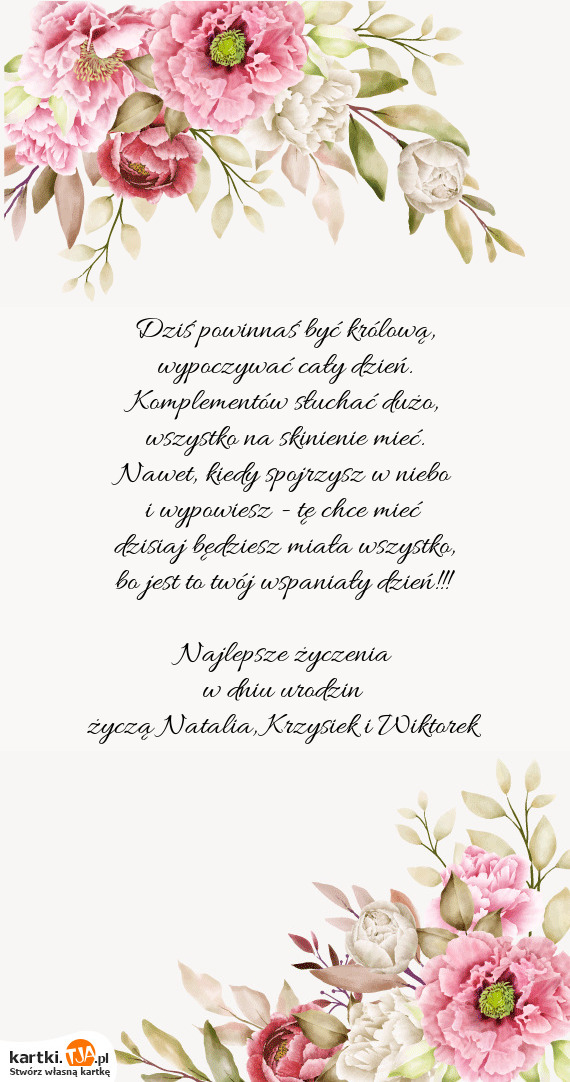 Dziś powinnaś być królową,
wypoczywać cały dzień.
Komplementów słuchać dużo,
wszystko na skinienie mieć.
Nawet, kiedy spojrzysz w niebo
i wypowiesz - tę chce mieć
dzisiaj będziesz miała wszystko,
bo jest to twój wspaniały dzień!!!
Najlepsze życzenia
w dniu urodzin
życzą Natalia, Krzysiek i Wiktorek
kartki.TJA.pl
Stwórz własną kartkę